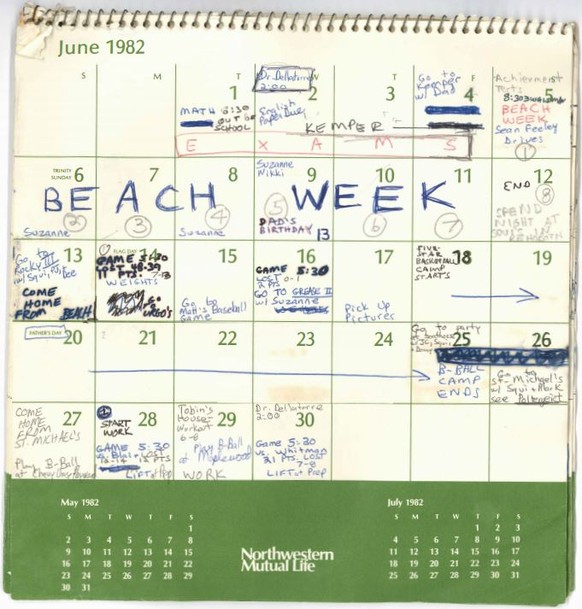 June 1982
S M T W T F S
1 2 3 4 5
Dr. Dellatorre
2:00
Go to
Kemper
w/ Dad
Achievement
Tests
8:30
MATH 8:30
OUT OF
SCHOOL
English
Paper Due
KEMPER
BEACH
WEEK
Sean Feeley
Drives
1
E X A M S
TRINITY
SUNDAY
6 7 8 9 10 11 12
Suzanne
Nikki
BEACH WEEK
END
2 3 4 5 6 7 8
DAD'S
BIRTHDAY
Suzanne
Suzanne
SPEND
NIGHT AT
13 14 15 16 17 18 19
FLAG DAY
Go to
Rocky III
COME
HOME
FROM BEACH
GAME 5:30
LOST 48-39
11 PTS. 7-8
WEIGHTS
Go to
Matt's Baseball
Game
GAME 5:30
LOST
2 Pts
GO TO GREASE II
w/ Suzanne
Pick Up
Pictures
FIVE-
STAR
BASKETBALL
CAMP
STARTS
FATHER'S DAY
20 21 22 23 24 25 26
Go to party
B-BALL
CAMP
ENDS
Go to
St. Michael's
w/ Squi + Mark
see Poltergeist
27 28 29 30
COME
HOME
FROM
ST. MICHAEL'S
Play B-Ball
at
START
WORK
GAME 5:30
LOST
LIFT at Prep
Tobin's
House
Workout
6-8
Play B-Ball
at Maplewood
WORK
Dr. Dellatorre
2:00
Game 5:30
vs. Whitman
21 PTS. LOST
7-8
LIFT at Prep
May 1982
S M T W T F S
1
2 3 4 5 6 7 8
9 10 11 12 13 14 15
16 17 18 19 20 21 22
23 24 25 26 27 28 29
30 31
Northwestern
Mutual Life
July 1982
S M T W T F S
1 2 3
4 5 6 7 8 9 10
11 12 13 14 15 16 17
18 19 20 21 22 23 24
25 26 27 28 29 30 31